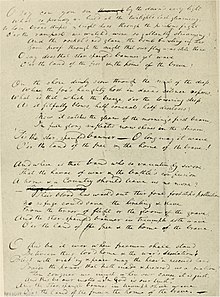 O say can you see by the dawn's early light
What so proudly we hail'd at the twilight's last gleaming,
Whose broad stripes & bright stars through the perilous fight
O'er the ramparts we watch'd, were so gallantly streaming?
And the rocket's red glare, the bomb bursting in air,
Gave proof through the night that our flag was still there
O say does that star spangled banner yet wave
O'er the land of the free & the home of the brave?
On the shore dimly seen through the mists of the deep,
Where the foe's haughty host in dread silence reposes,
What is that which the breeze, o'er the towering steep,
As it fitfully blows, half conceals, half discloses?
Now it catches the gleam of the morning's first beam,
In full glory reflected now shines in the stream,
'Tis the star-spangled banner — O long may it wave
O'er the land of the free & the home of the brave!
And where is that band who so vauntingly swore,
That the havoc of war & the battle's confusion
A home & a Country should leave us no more?
Their blood has wash'd out their foul footstep's pollution.
No refuge could save the hireling & slave
From the terror of flight or the gloom of the grave,
And the star-spangled banner in triumph doth wave
O'er the land of the free & the home of the brave.
O thus be it ever when freemen shall stand
Between their lov'd home & the war's desolation!
Blest with vict'ry & peace may the heav'n rescued land
Praise the power that hath made & preserv'd us a nation!
Then conquer we must, when our cause it is just,
And this be our motto — "In God is our trust,"
And the star-spangled banner in triumph shall wave
O'er the land of the free & the home of the brave.